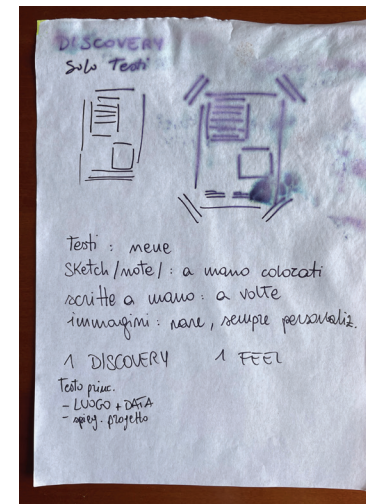 DISCOVERY
Solo Testi
Testi : neve
SKetch/note/: a mano colorati
scritte a mano : a volte
immagini : rare, sempre personaliz.
1 DISCOVERY 1 FEEL
Testo princ.
- LUOGO + DATA
- spieg. progetto